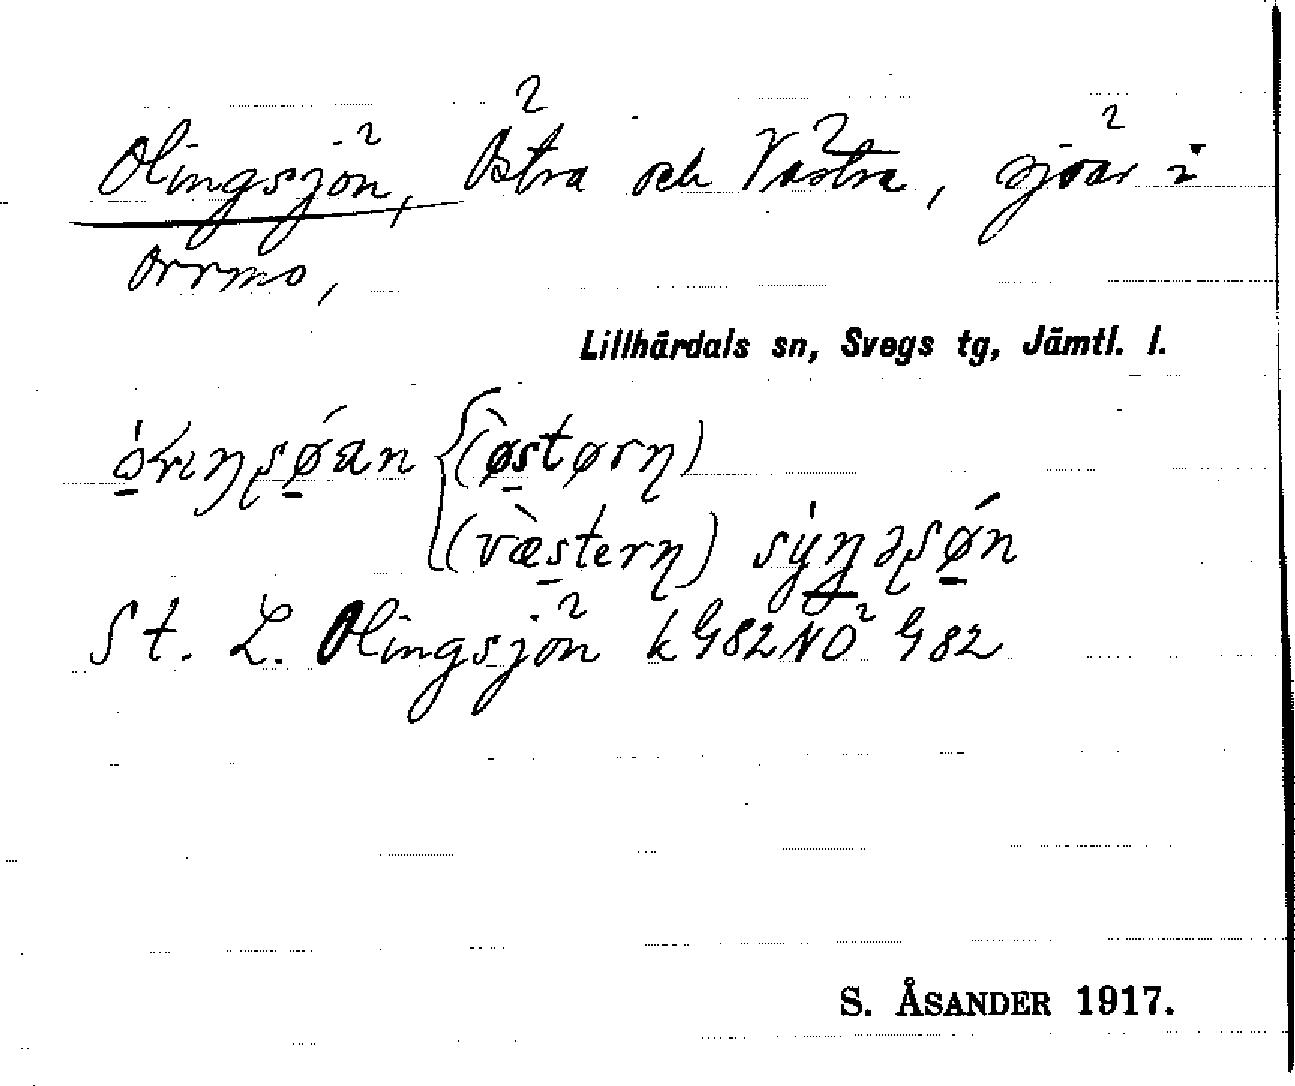 Olingsjön, Östra och Västra, sjöar i
Orrmo,
Lillhärdals sn, Svegs tg, Jämtl. l.
(østørn)
(væstern)
St. L. Olingsjön k G82NO G82
S. ÅSANDER 1917.